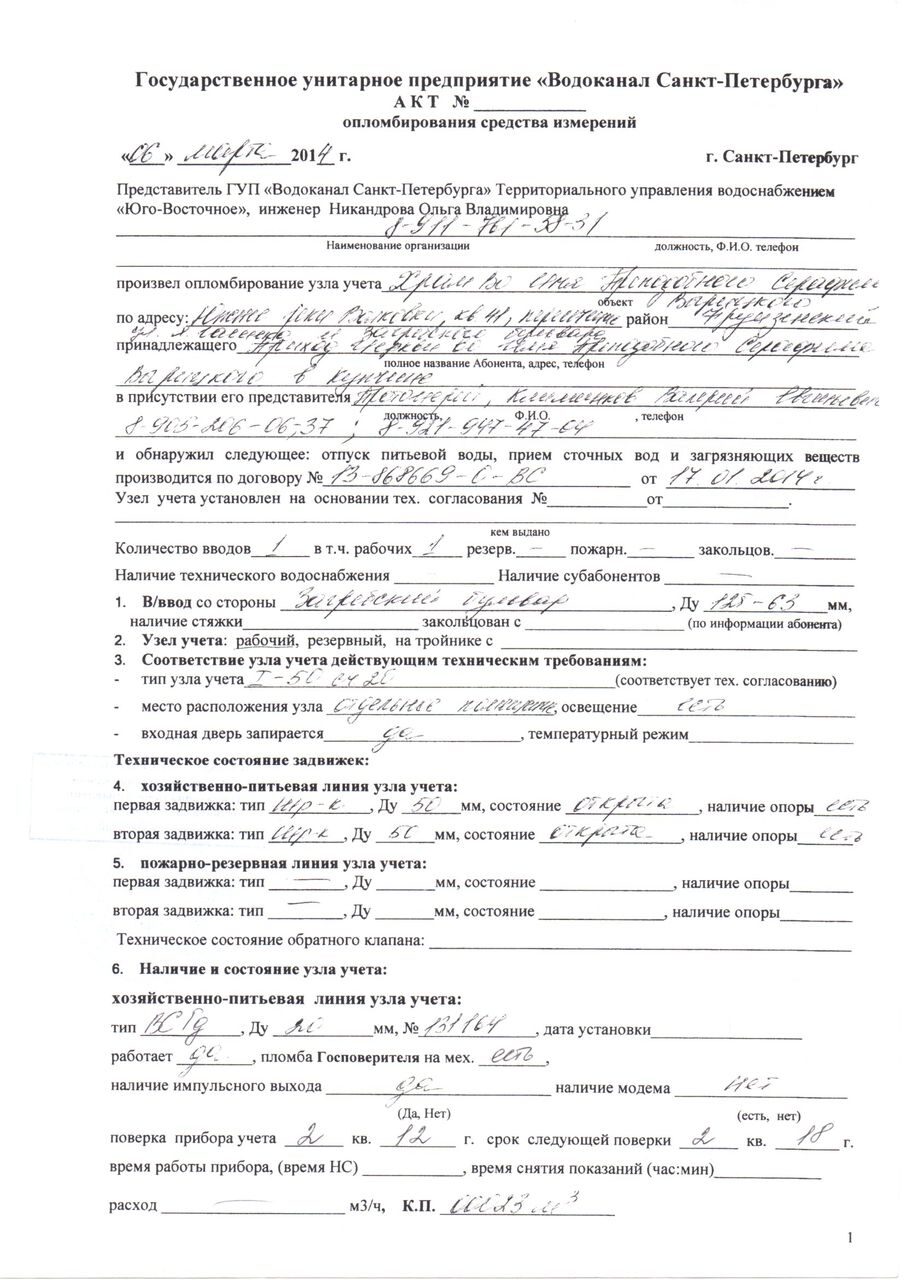 Государственное унитарное предприятие «Водоканал Санкт-Петербурга»
АКТ №
опломбирования средства измерений
«06» марта 2014 г. г. Санкт-Петербург
Представитель ГУП «Водоканал Санкт-Петербурга» Территориального управления водоснабжением
«Юго-Восточное», инженер Никандрова Ольга Владимировна
8-911-761-38-31
Наименование организации должность, Ф.И.О. телефон
произвел опломбирование узла учета Храм Во имя Преподобного Серафима
объект Вырицкого
по адресу: Южнее реки Волковки, кв 41, район Фрунзенский
и Загребского бульвара
принадлежащего Приход церкви во имя Преподобного Серафима
полное название Абонента, адрес, телефон
Вырицкого в Купчине
в присутствии его представителя Протоиерей, Валерий
должность, Ф.И.О. , телефон
8-905-206-06-37; 8-921-947-47-04
и обнаружил следующее: отпуск питьевой воды, прием сточных вод и загрязняющих веществ
производится по договору № 13-868669-О-ВС от 17.01.2014г.
Узел учета установлен на основании тех. согласования № от .
кем выдано
Количество вводов 1 в т.ч. рабочих 1 резерв. — пожарн. — закольцов. —
Наличие технического водоснабжения Наличие субабонентов —
1. В/ввод со стороны Загребский бульвар, Ду 125-63 мм,
наличие стяжки закольцован с (по информации абонента)
2. Узел учета: рабочий, резервный, на тройнике с
3. Соответствие узла учета действующим техническим требованиям:
- тип узла учета I-50 сч 20 (соответствует тех. согласованию)
- место расположения узла отдельное помещение, освещение есть
- входная дверь запирается да, температурный режим
Техническое состояние задвижек:
4. хозяйственно-питьевая линия узла учета:
первая задвижка: тип шар-к, Ду 50 мм, состояние открыта, наличие опоры есть
вторая задвижка: тип шар-к, Ду 50 мм, состояние открыта, наличие опоры есть
5. пожарно-резервная линия узла учета:
первая задвижка: тип —, Ду мм, состояние , наличие опоры
вторая задвижка: тип —, Ду мм, состояние , наличие опоры
Техническое состояние обратного клапана:
6. Наличие и состояние узла учета:
хозяйственно-питьевая линия узла учета:
тип ВСГд, Ду 20 мм, № 131164, дата установки
работает да, пломба Госповерителя на мех. есть,
наличие импульсного выхода да наличие модема нет
(Да, Нет) (есть, нет)
поверка прибора учета 2 кв. 12 г. срок следующей поверки 2 кв. 18 г.
время работы прибора, (время НС) , время снятия показаний (час:мин)
расход — м3/ч, К.П. 00023 м³
1